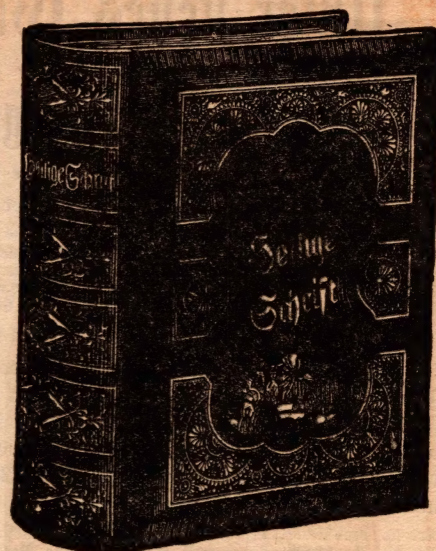 Heilige Schrift
Heilige
Schrift